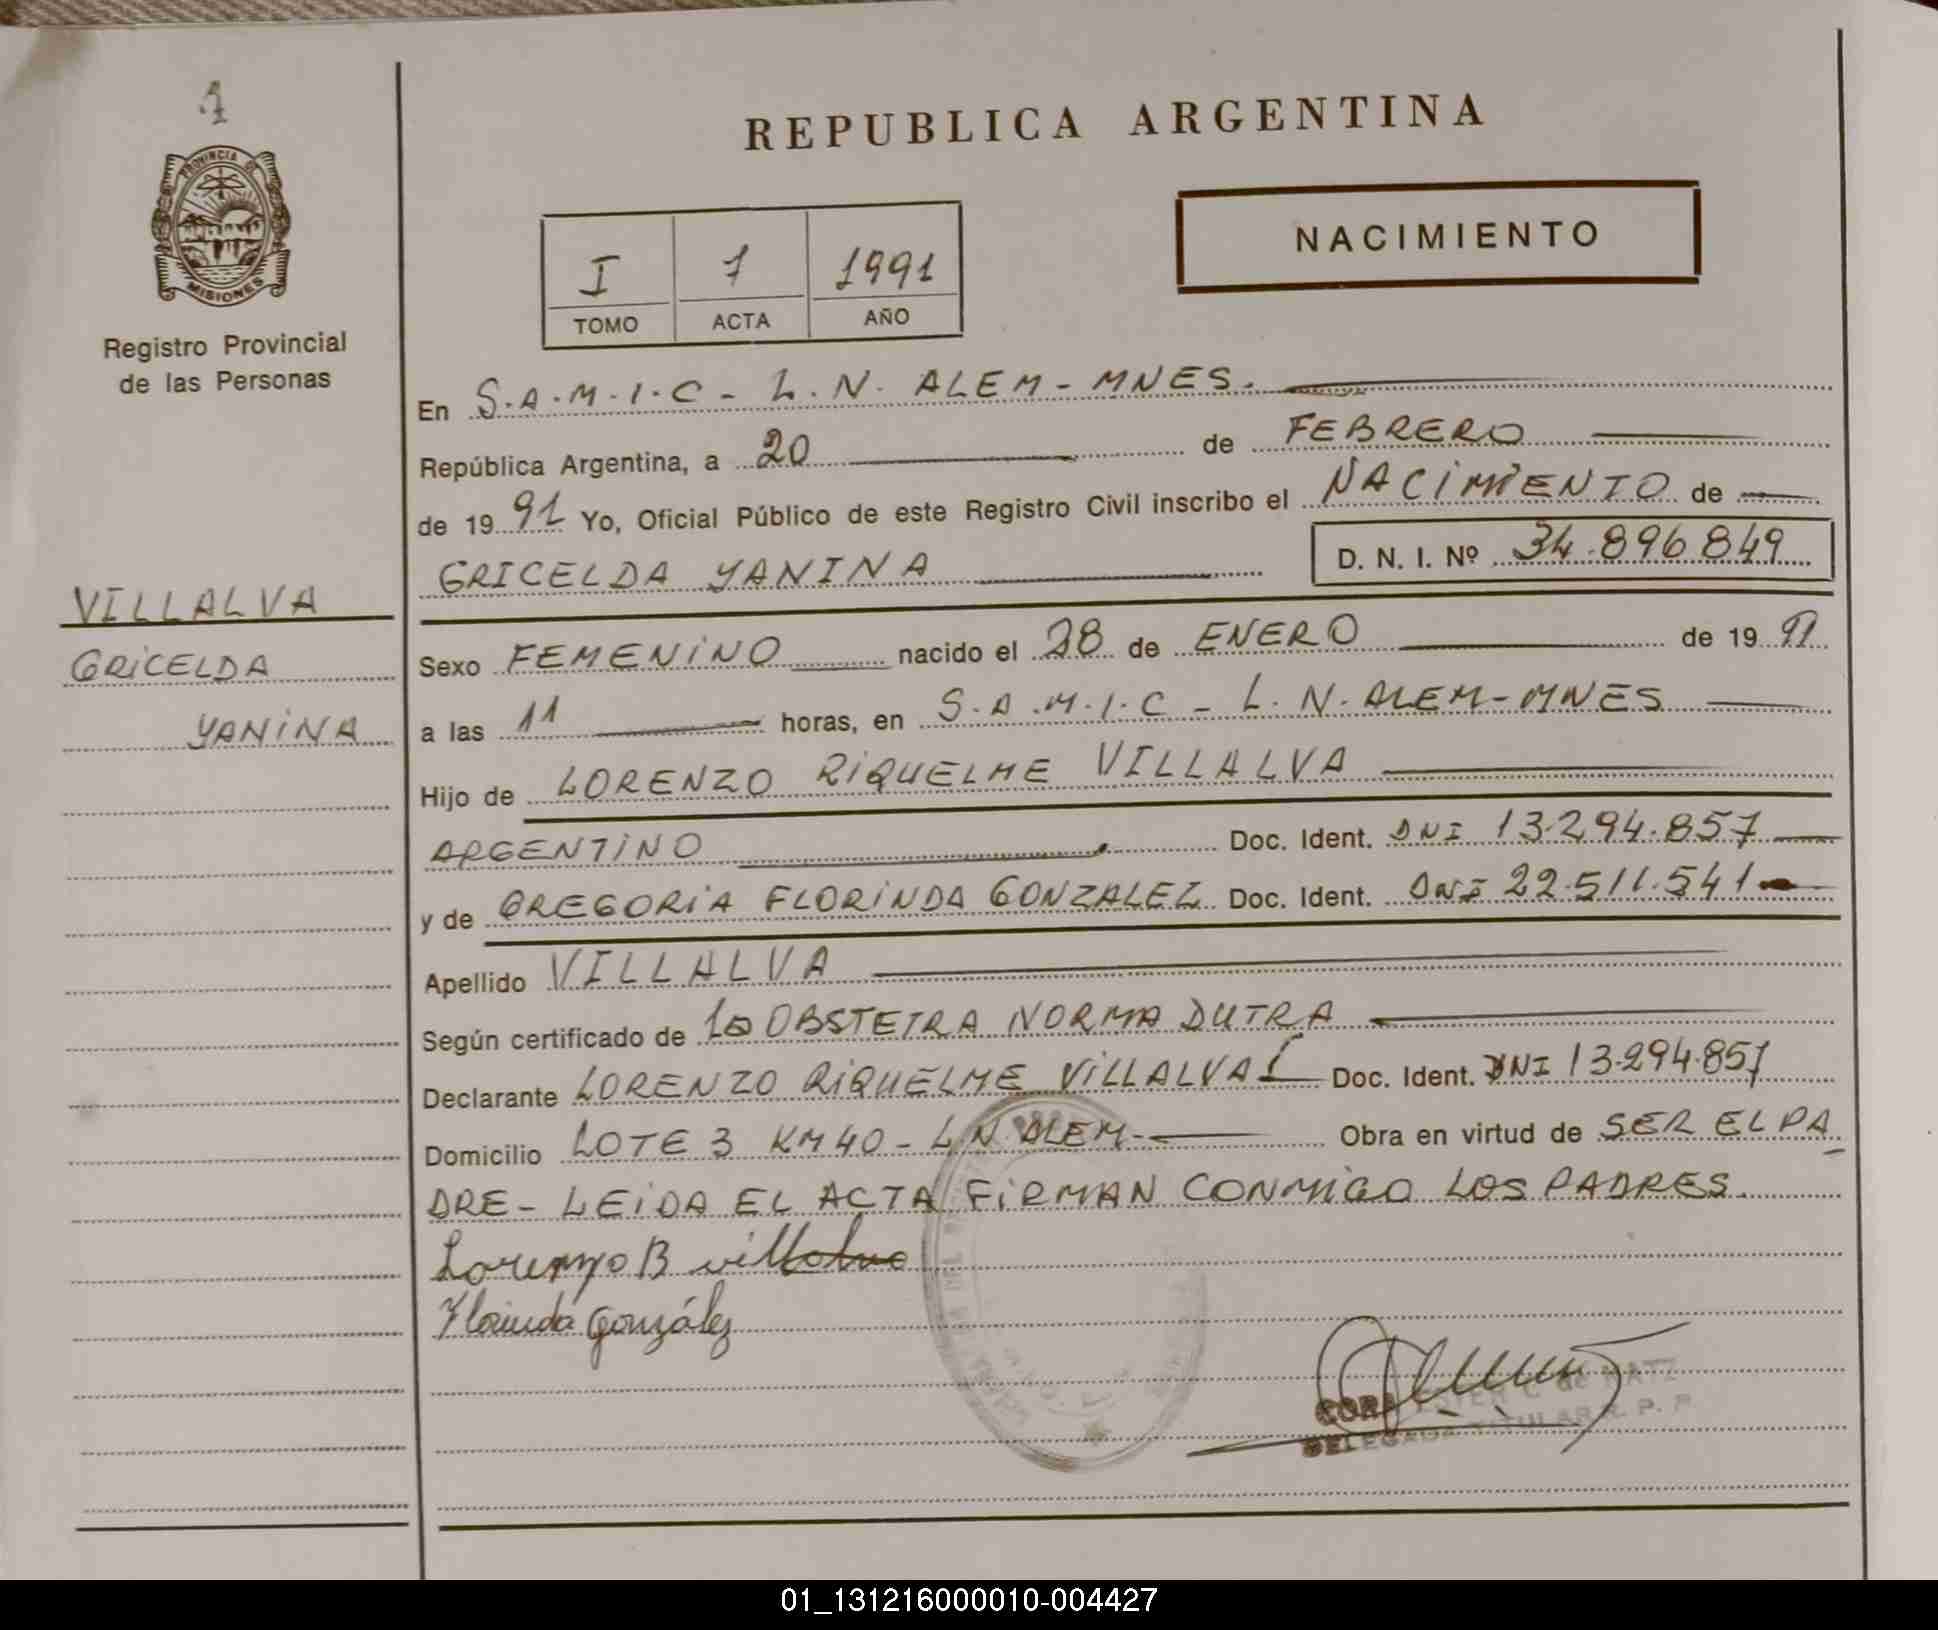 1
PROVINCIA DE
MISIONES
Registro Provincial
de las Personas
VILLALVA
GRICELDA
YANINA
REPUBLICA ARGENTINA
I 1 1991
TOMO ACTA AÑO
NACIMIENTO
En S.A.M.I.C - L.N. ALEM - MNES.
República Argentina, a 20 de FEBRERO
de 1991 Yo, Oficial Público de este Registro Civil inscribo el NACIMIENTO de
GRICELDA YANINA D. N. I. Nº 34.896.849
Sexo FEMENINO nacido el 28 de ENERO de 1991
a las 11 horas, en S.A.M.I.C - L.N. ALEM-MNES
Hijo de LORENZO RIQUELME VILLALVA
ARGENTINO Doc. Ident. DNI 13.294.857
y de GREGORIA FLORINDA GONZALEZ Doc. Ident. DNI 22.511.541
Apellido VILLALVA
Según certificado de la OBSTETRA NORMA DUTRA
Declarante LORENZO RIQUELME VILLALVA Doc. Ident. DNI 13.294.857
Domicilio LOTE 3 KM 40 - L.N. ALEM - Obra en virtud de SER EL PA
DRE - LEIDA EL ACTA FIRMAN CONMIGO LOS PADRES.
Lorenzo B villalva
Florinda González
DELEGADA TITULAR R. P. P.
01_131216000010-004427